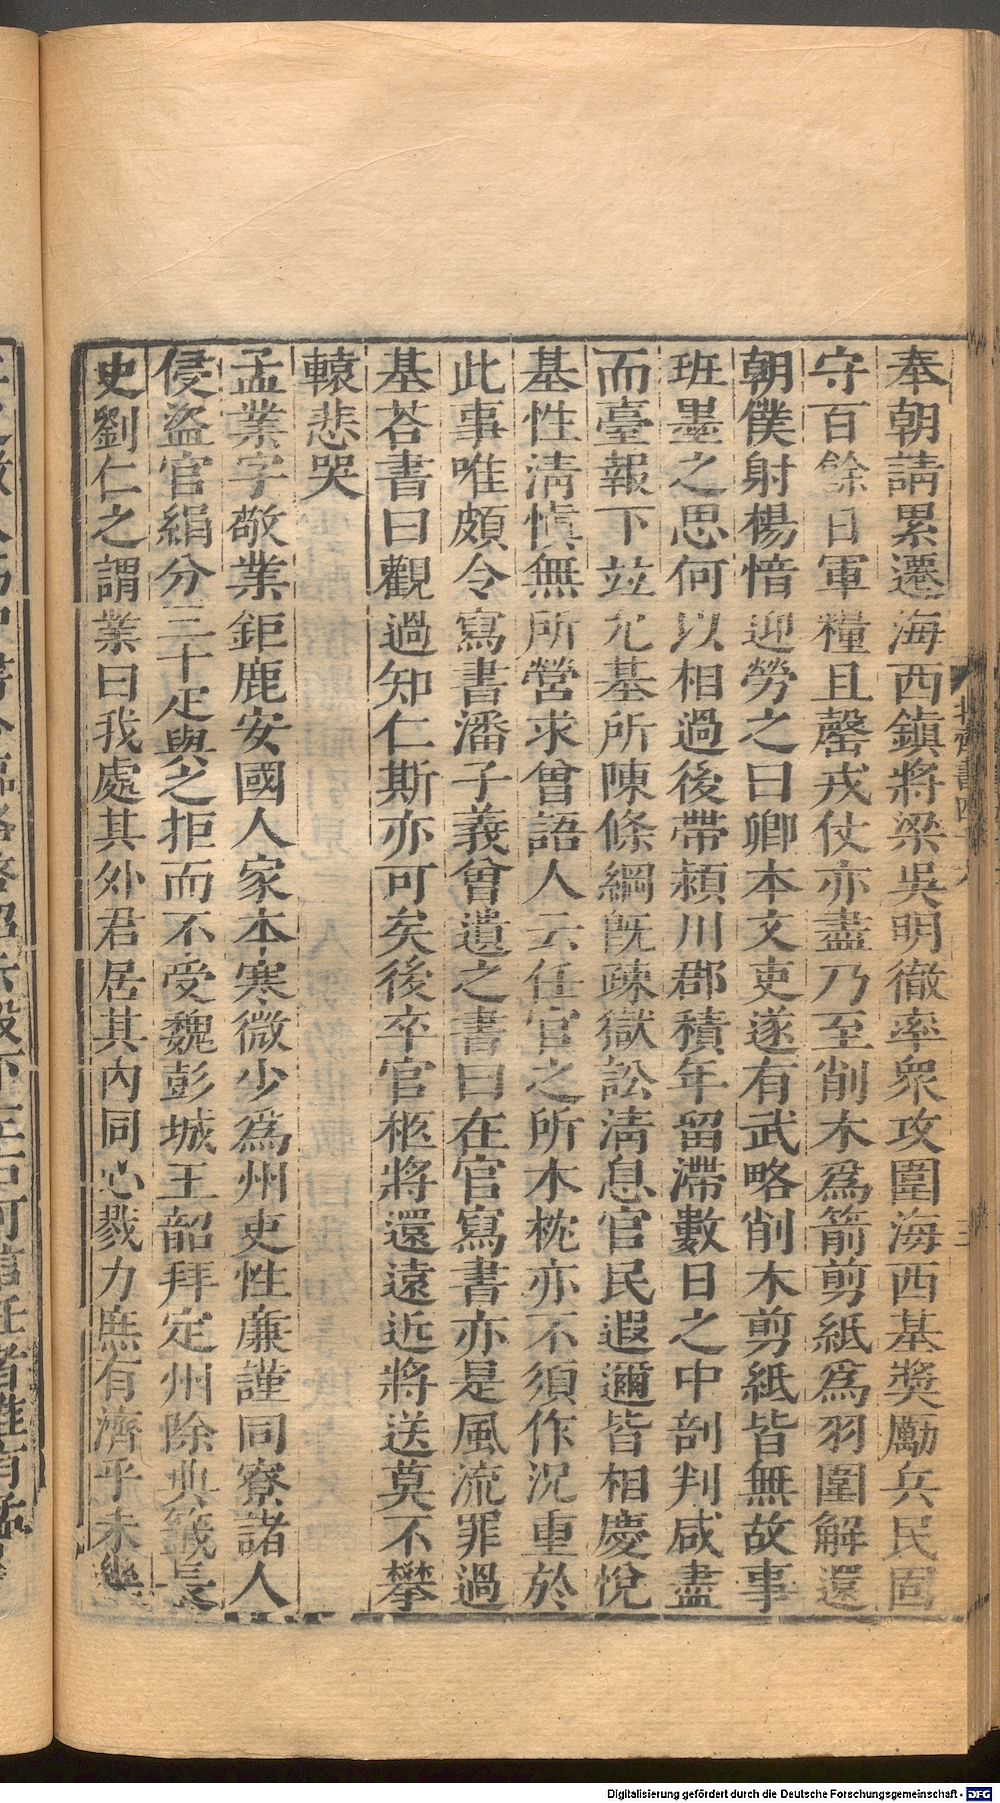 奉朝請累遷海西鎮將梁吳明徹率衆攻圍海西基奬勵兵民固
守百餘日軍糧且罄戎仗亦盡乃至削木爲箭剪紙爲羽圍解還
朝僕射楊愔迎勞之曰卿本文吏遂有武略削木剪紙皆無故事
班墨之思何以相過後帶潁川郡積年留滯數日之中剖判咸盡
而臺報下並允基所陳條綱旣疎獄訟淸息官民遐邇皆相慶悅
基性淸愼無所營求曾語人云任官之所木枕亦不須作况重於
此事唯頗令寫書潘子義曾遺之書曰在官寫書亦是風流罪過
基荅書曰觀過知仁斯亦可矣後卒官柩將還遠近將送莫不攀
轅悲哭
孟業字敬業鉅鹿安國人家本寒微少爲州吏性廉謹同寮諸人
侵盜官絹分三十疋與之拒而不受魏彭城王韶拜定州除典籤長
史劉仁之謂業曰我處其外君居其內同心戮力庶有濟乎未幾
北齊書四十六
三
Digitalisierung gefördert durch die Deutsche Forschungsgemeinschaft - DFG